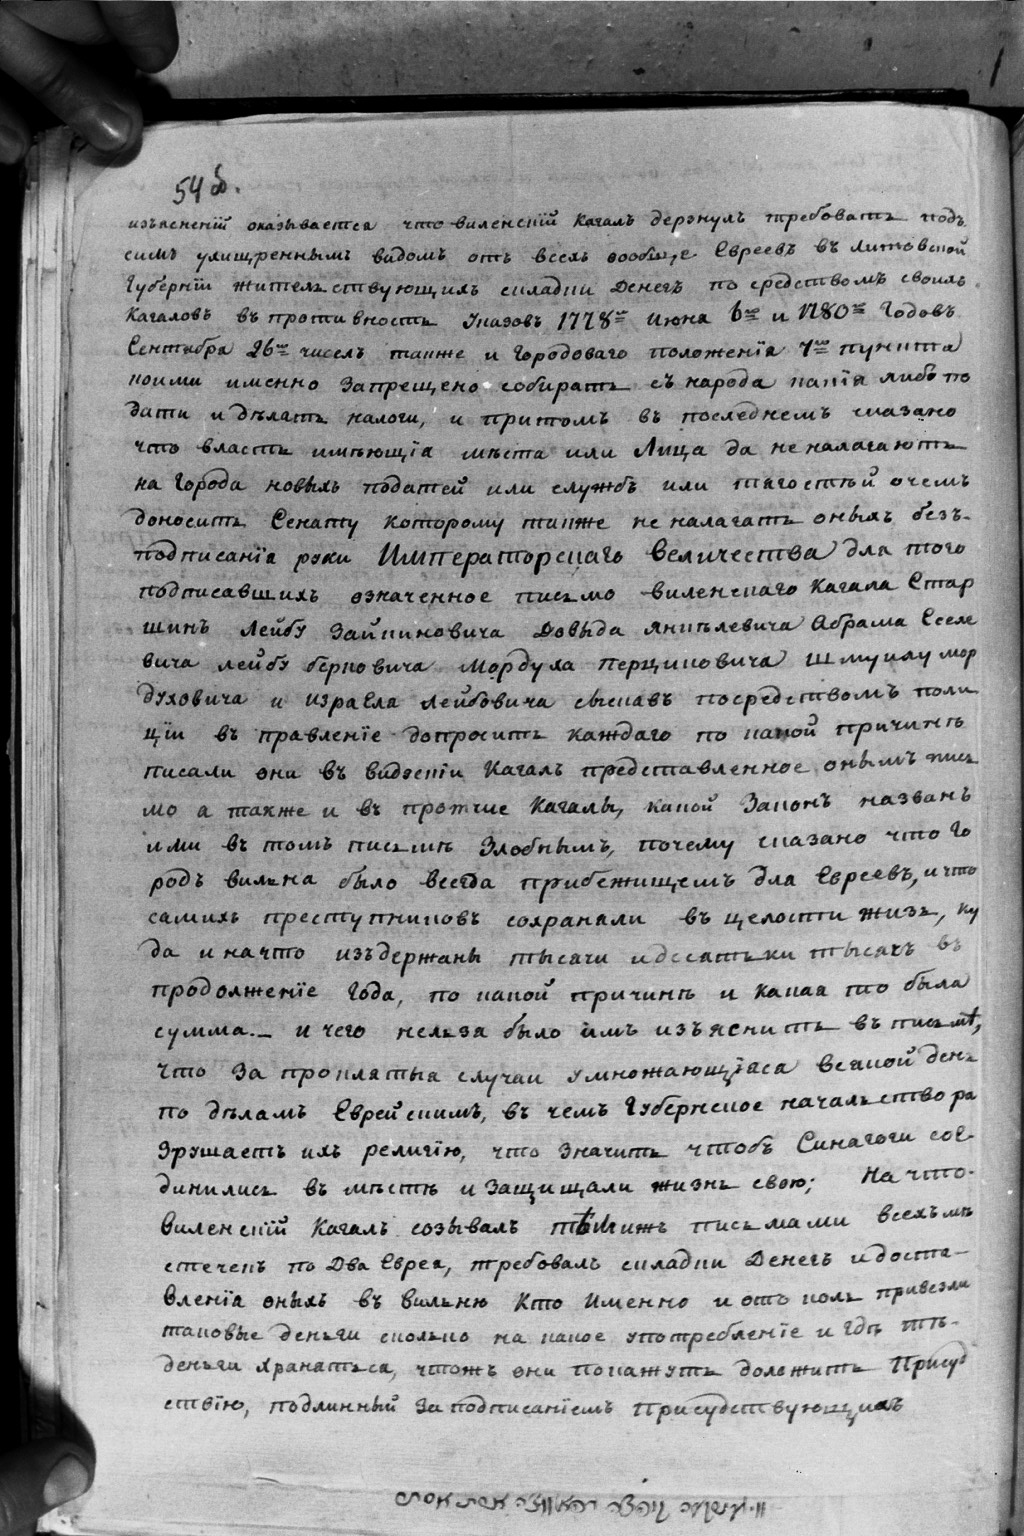 54 об.
изъясненій оказывается что виленскій Кагалъ дерзнулъ требовать подъ
симъ ухищреннымъ видомъ отъ всехъ вообще Евреевъ въ Литовской
Губерніи жительствующихъ складки Денегъ по средствомъ своихъ
Кагаловъ въ противность Указовъ 1778го Июня 6го и 1780го Годовъ
Сентября 26го чиселъ также и Городоваго положенія 7го пункта
коими именно Запрещено собирать съ народа какія либо по
дати и дѣлать налоги, и притомъ въ последнемъ сказано
что власть имѣющія мѣста или Лица да не налагаютъ
на Города новыхъ податей или службъ или тягостѣй о чемъ
доносить Сенату которому также не налагать оныхъ безъ-
подписанія руки Императорскаго величества для того
подписавшихъ означенное письмо виленскаго Кагала Стар
шинъ Лейбу Зайкиновича Довыда Янкѣлевича Абрама Еселе
вича Лейбу берковича Мордуха Перциковича Шмуилу мор
духовича и израеля Лейбовича сыскавъ посредствомъ поли
ціи въ правленіе допросить каждаго по какой причинѣ
писали они въ видзскіи Кагалъ представленное онымъ пись
мо а также и въ протчие Кагалы, какой Законъ названъ
ими въ томъ письмѣ Злобнымъ, почему сказано что Го
родъ вильна было всегда прибежищемъ для Евреевъ, и что
самихъ преступниковъ сохраняли въ целости жизнь, ку
да и на что изъдержаны тысячи и десятьки тысячъ въ
продолженіе Года, по какой причинѣ и какая то была
сумма.- и чего нельзя было имъ изъяснить въ письмѣ,
что За проклятыя случаи умножающіяся всякой день
по дѣламъ Еврейскимъ, въ чемъ Губернское начальство ра
зрушаетъ ихъ религію, что Значитъ чтобъ Синагоги сое-
динились въ мѣстѣ и Защищали жизнь свою; На что-
Виленскій Кагалъ созывалъ тѣмижъ письмами всехъ мѣ
стечекъ по Два Еврея, требовалъ складки Денегъ и доста-
вленія оныхъ въ вильню Кто Именно и отъ коль привезли
таковые деньги сколько на какое употребленіе и Гдѣ тѣ-
деньги Хранятьса, чтожъ они покажутъ доложить Присуд
ствію, подлинный За подписаніемъ Присудствующихъ